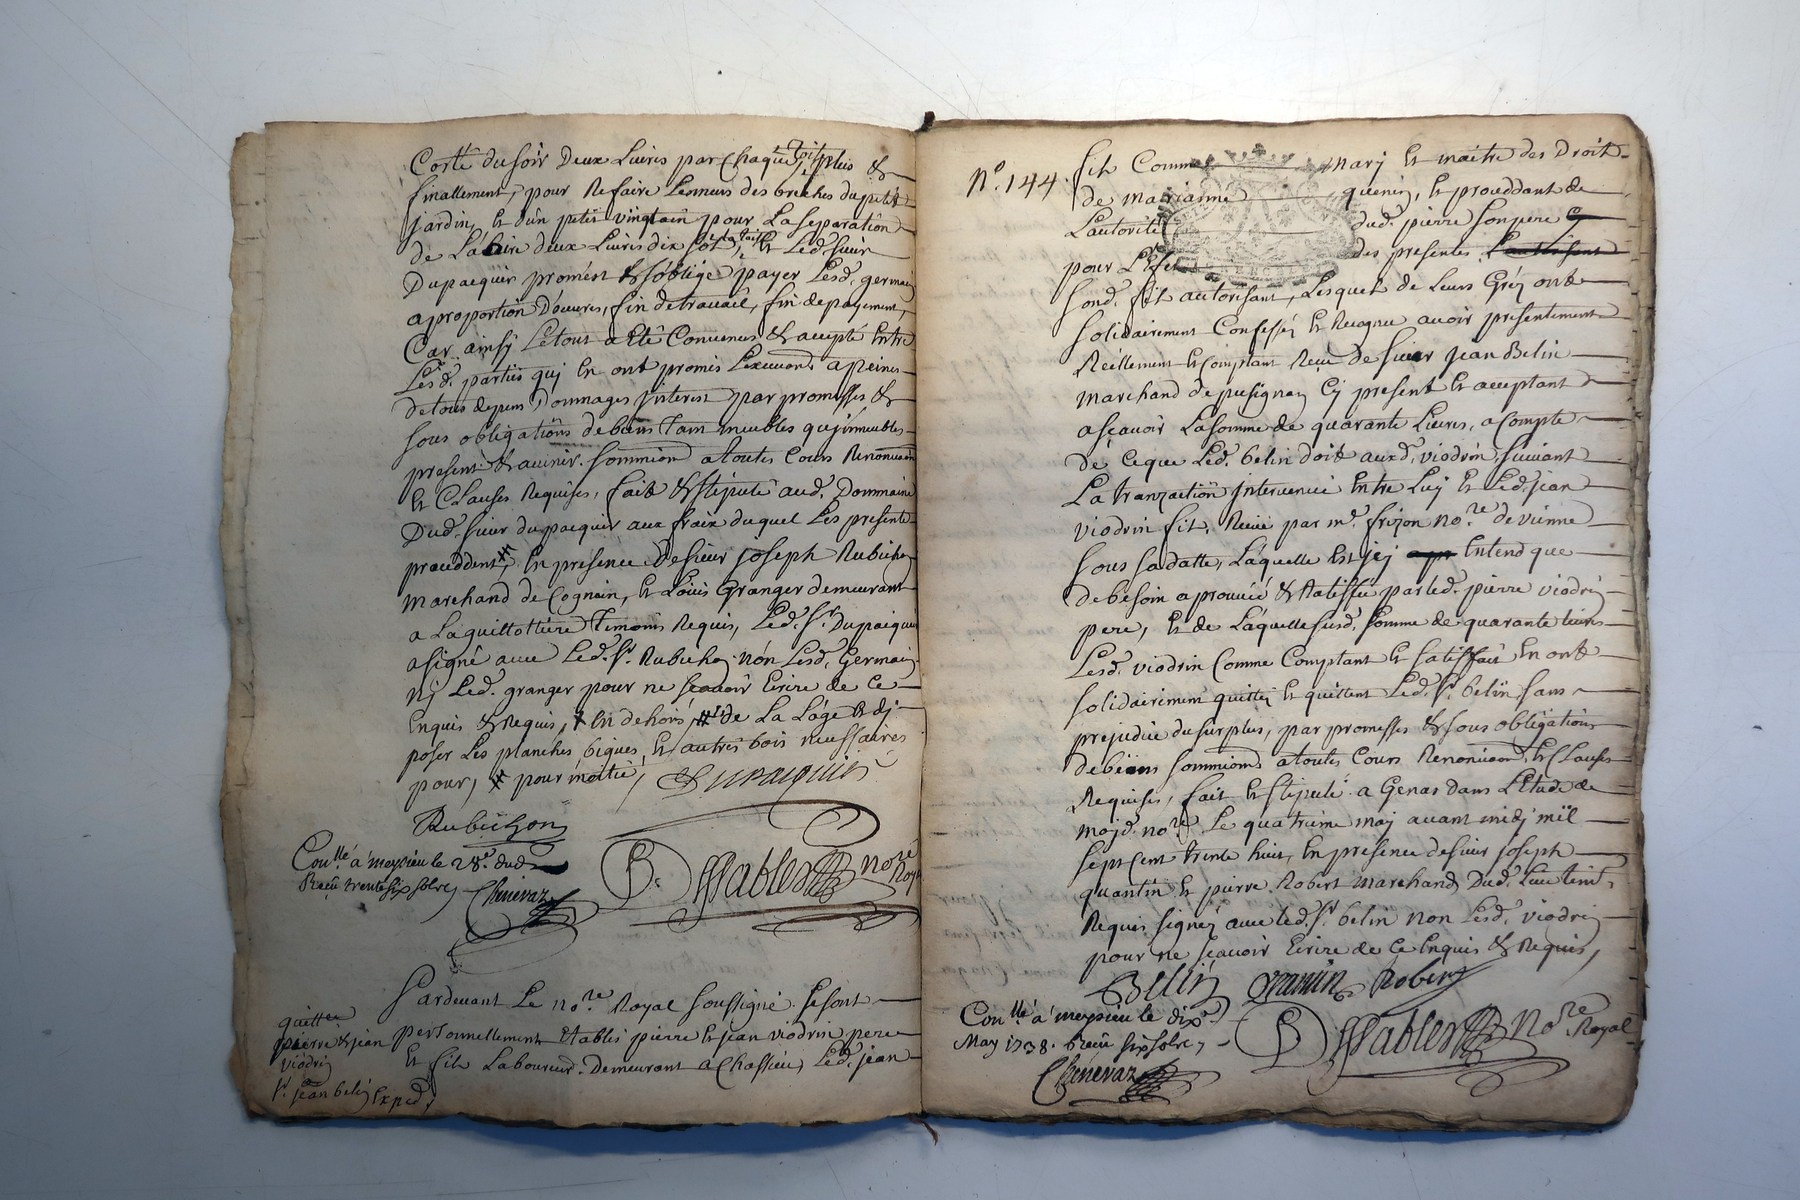 Costé du soir Deux Livres par Chaque toise, plus &
finallement, pour Refaire Lesmurs des breches du petit
jardin, et d'un petit vingtain pour La separation
de deux Livres dix sols, la toise, et Led. sieur
Dupacquier promest & s'oblige payer Lesd. germain
a proportion D'œuvres, fin de travail, fin de payement,
Car ainsy Le tout a eté Convenus & accepté Entre
Lesd. parties qui En ont promis a peines
de tous depens, Dommages jnterest par promesses &
sous obligations de biens Tant meubles qu'jmmeubles
present & avenir. a toutes Cours
Et Clauses Requises, fait & stipulé aud. Dommaine
Dud. sieur dupacquier aux fraix duquel Les presente
# En presence de sieur joseph Rubichon
Marchand de Et Loüis Granger demeurant
a La quillottiere Temoins Requis, Led. Sr. Dupacquier
a signé avec Led. Sr. Rubichon non Lesd. Germain
Ny Led. granger pour ne sçavoir Ecrire de Ce
Enquis & Requis, En dehors, # de La &
poser Les planches bigues Et autres bois necessaires
pour, pour moitié, Dupacquier
Rubichon
Conllé a meyzieu le 28e. dud.
Receu trente six sols Chenevaz
Dessables nore Royal
Pardevant Le Nore. Royal soussigné. se sont
personnellement Etablis pierre Et jean viodrin pere
Et fils Laboureurs Demeurant a Chassieu, Led. jean
quittce
pierre & jean
viodrin
Sr. jean belin Exped.
No. 144. fils Comme mary Et maitre des Droits
de marianne quenin, Et proceddant de
L'autorité dud. pierre son pere
pour des presentes L'autorisant
sond. fils autorisant, Lesquels de Leurs Gréz ont
solidairement Confessés Et Recognu avoir presentement
Reellement Et Comptant Receu de sieur jean Belin
marchand de pusignan Cy present Et acceptant
a sçavoir La somme de quarante Livres, a Compte
de Ceque Led. belin doit auxd. viodrin suivant
La tranzaction jntervenüe Entre Luy Et Led. jean
viodrin fils, Receu par me. frizon nore. de vienne
sous sa datte, Laquelle Est jcy Entend que
de besoin aprouvée & Ratiffiée par led. pierre viodrin
pere, Et de Laquelle susd. somme de quarante Livres
Lesd. viodrin Comme Comptant Et satisfait En ont
solidairement quitté Et quittent Led. Sr. belin sans
prejudice du surplus, par promesses & sous obligations
de biens a toutes Cours Et Clauses
Requises, fait Et stipulé a Genas dans L'Etude de
moyd. nore. Le quatrieme may avant midy mil
sept Cent trente huit, En presence de sieur joseph
quantin Et pierre Robert Marchands Dud. Lieu temt.
Requis signés avec led. Sr. belin non Lesd. viodrin
pour ne sçavoir Ecrire de Ce Enquis & Requis,
Bellin Robert
Conllé a meyzieu le dixe.
May 1738. Receu six sols
Chenevaz
Dessables Nore Royal